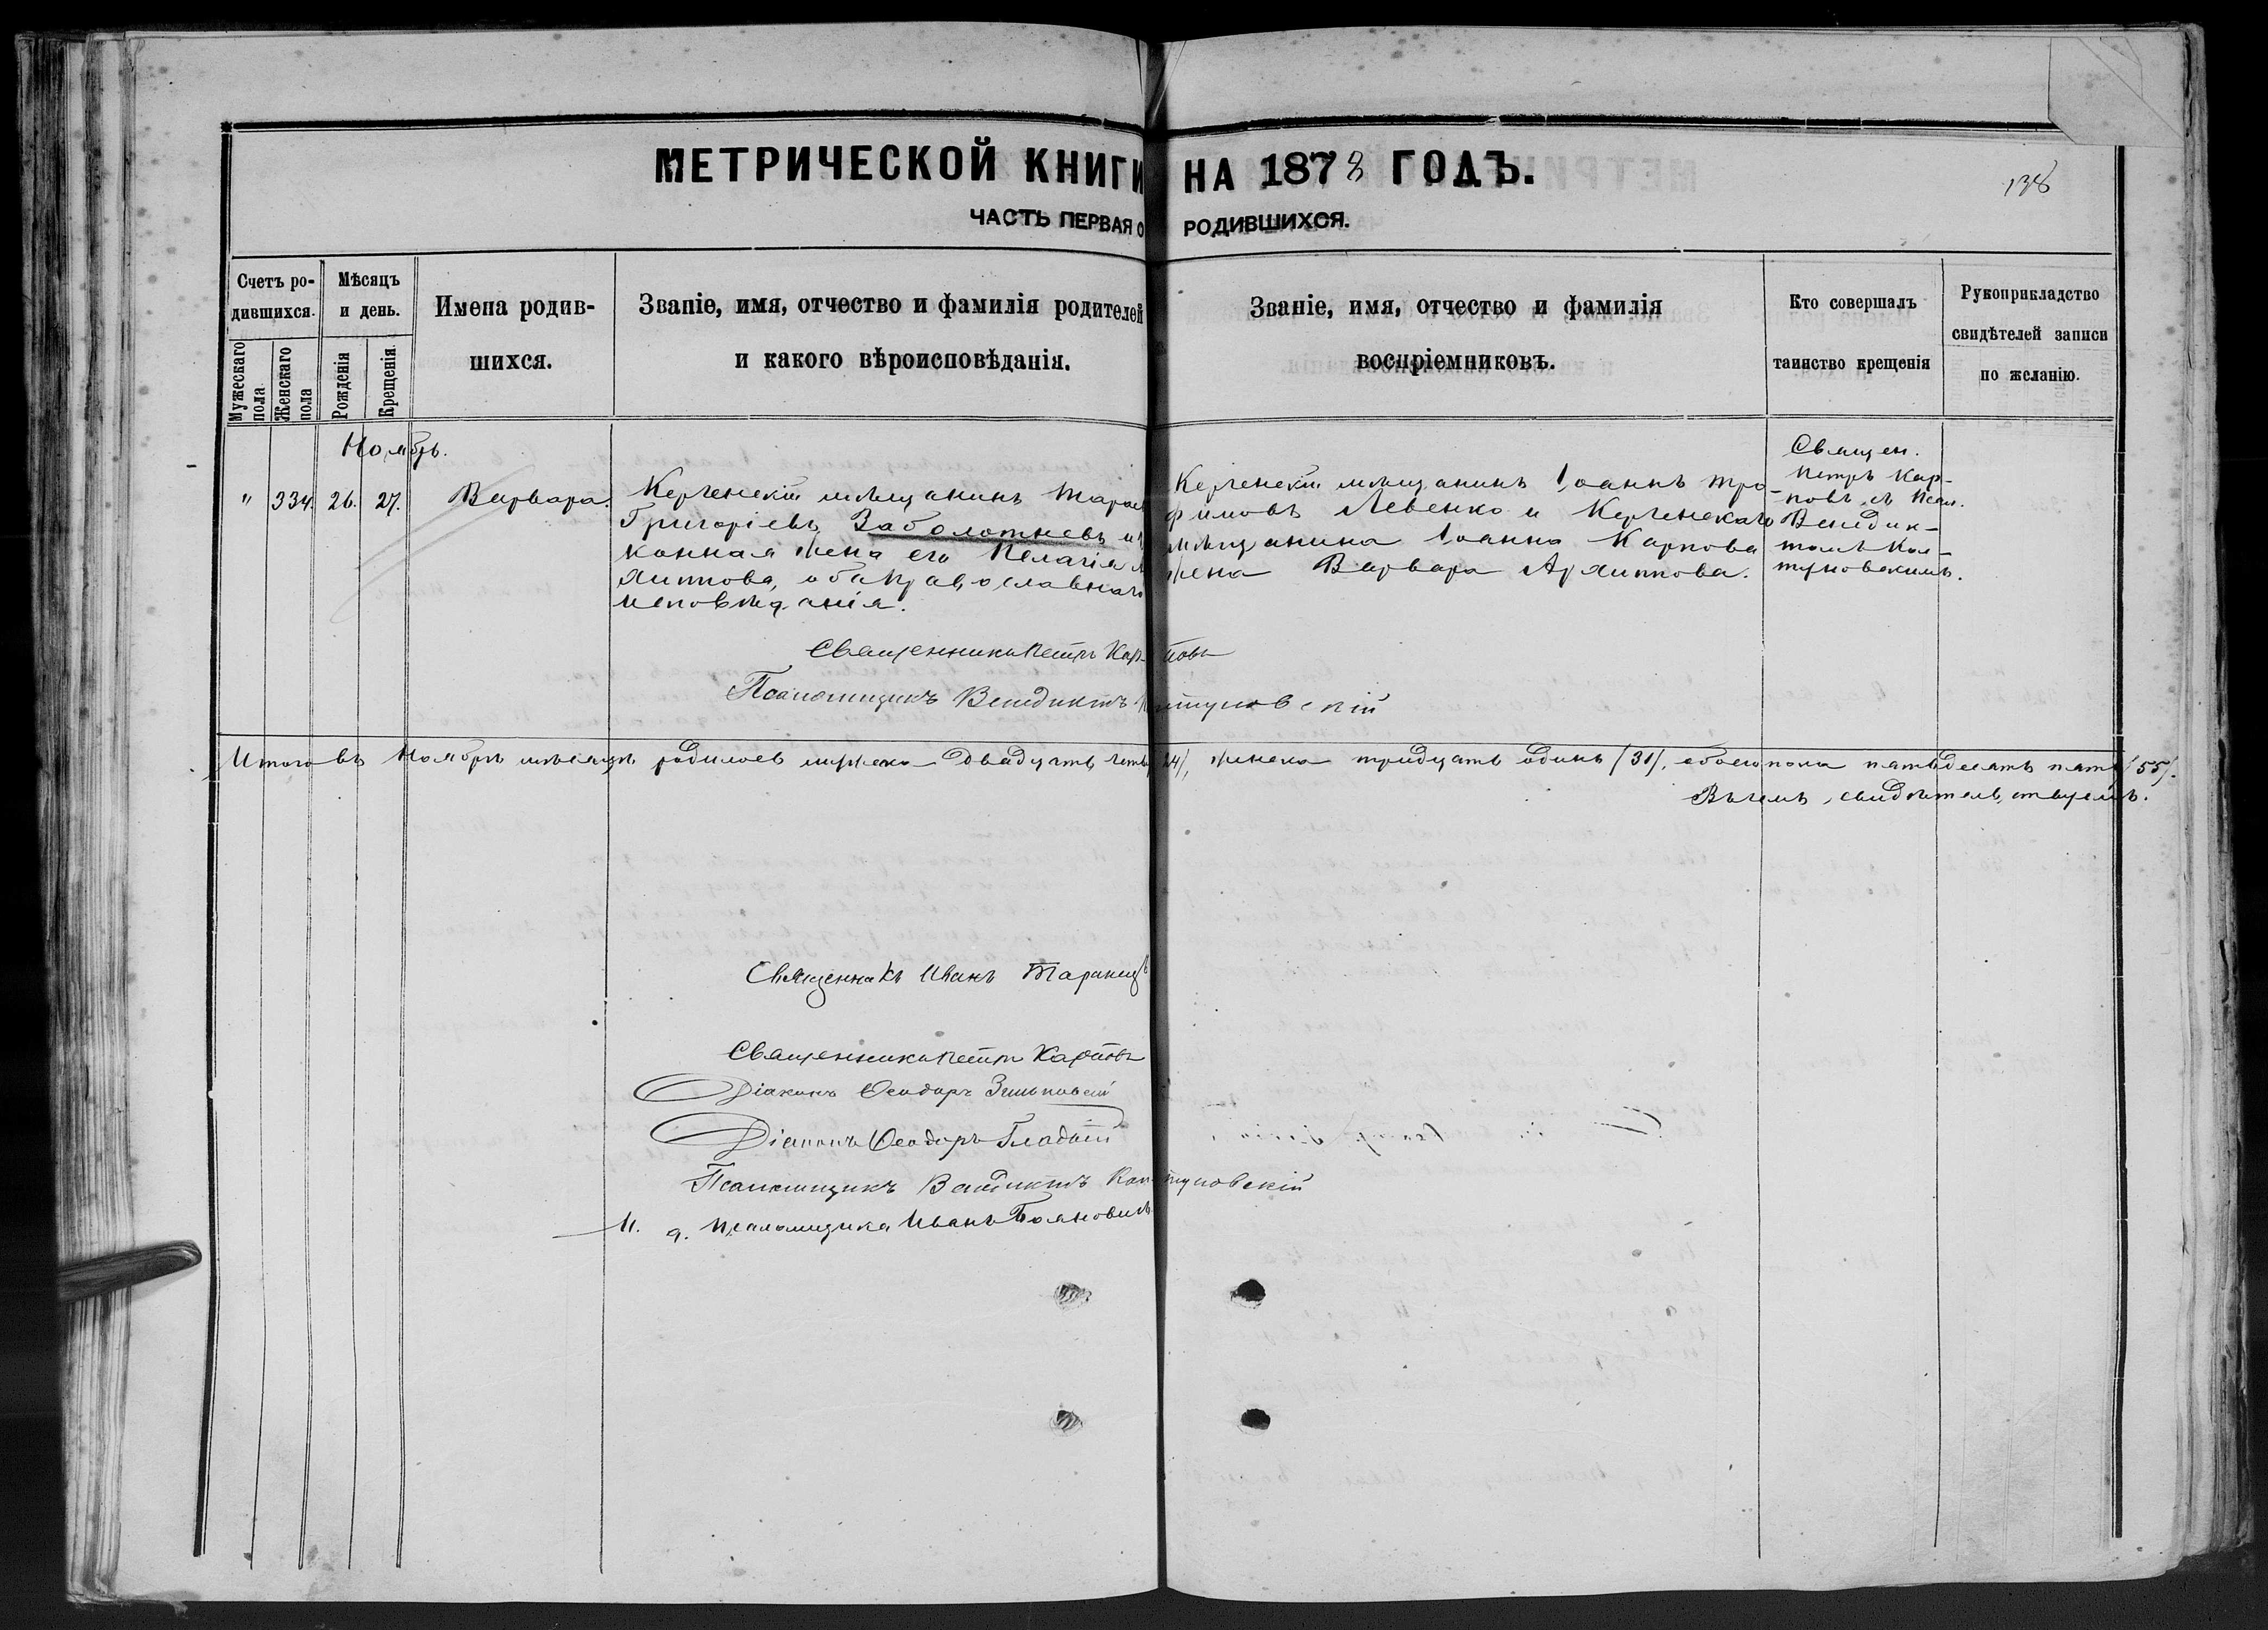 МЕТРИЧЕСКОЙ КНИГИ НА 1878 ГОДЪ.
138
ЧАСТЬ ПЕРВАЯ о РОДИВШИХСЯ.
Счетъ ро-
дившихся.
Мужескаго пола
Женскаго пола
Мѣсяцъ
и день.
Рожденія
Крещенія.
Имена родив-
шихся.
Званіе, имя, отчество и фамилія родителей
и какого вѣроисповѣданія.
Званіе, имя, отчество и фамилія
воспріемниковъ.
Кто совершалъ
таинство крещенія
Рукоприкладство
свидѣтелей записи
по желанію.
Ноябрь.
" 334. 26. 27. Варвара.
Керченскій мѣщанинъ Тарас
Григоріевъ Заболотневъ и
конная жена его Пелагія
хиппова, оба православнаго
исповѣданія.
Керченскій мѣщанинъ Іоаннъ Тро-
фимовъ Левенко и Керченскаго
мѣщанина Іоанна Карпова
жена Варвара Архиппова.
Священ.
Петръ Кар-
повъ съ Псал.
Венедик-
томъ Кол-
туновскимъ.
Священникъ Петръ Карповъ
Псаломщикъ Венедиктъ Колтуновскій
Итого въ Ноябрѣ мѣсяцѣ родилось мужеска двадцать четыр 24/, женска тридцать одинъ /31/, обоего пола пятьдесятъ пять /55/.
Въ чемъ свидѣтельствуемъ.
Священникъ Иванъ
Священникъ Петръ Карповъ
Діаконъ Ѳеодоръ Зеньковскій
Діаконъ Ѳеодоръ Гладкій
Псаломщикъ Венедиктъ Колтуновскій
И. д. псаломщика Иванъ Бояновичъ